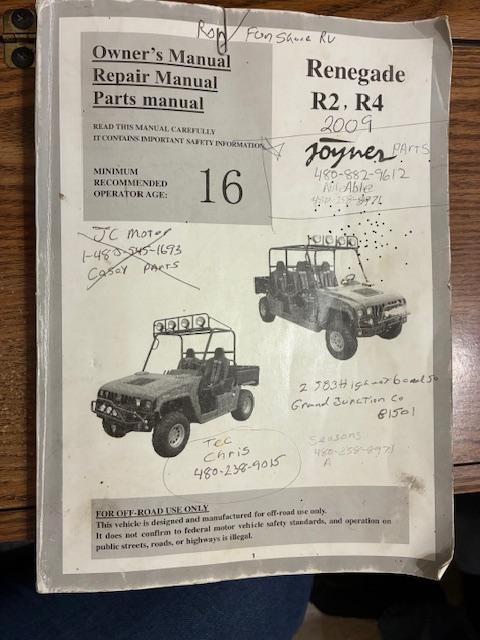 Fun Share RV
Owner's Manual
Repair Manual
Parts manual
Renegade
R2, R4
2009
READ THIS MANUAL CAREFULLY
IT CONTAINS IMPORTANT SAFETY INFORMATION
joyner PARTS
480-882-9612
MINIMUM
RECOMMENDED
OPERATOR AGE:
16
JC Motor
1-480-545-1693
Casey Parts
Grand Junction Co
81501
Tec
Chris
480-238-9015
Seasons
480-258-8971
A
FOR OFF-ROAD USE ONLY
This vehicle is designed and manufactured for off-road use only.
It does not confirm to federal motor vehicle safety standards, and operation on
public streets, roads, or highways is illegal.
1